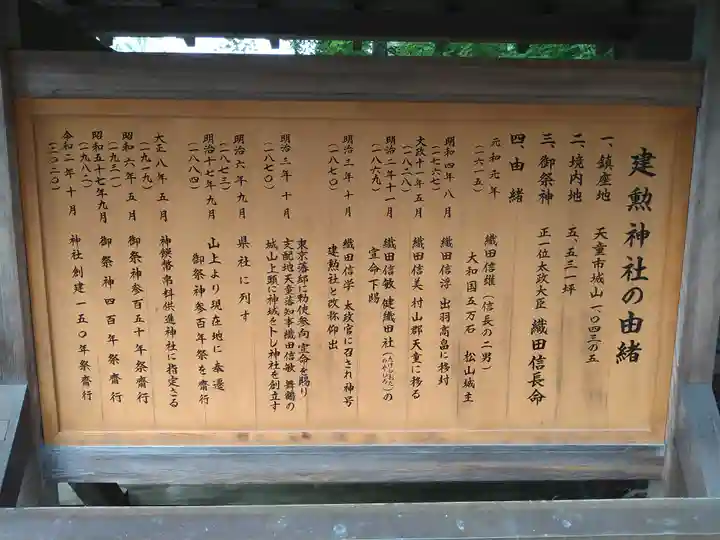 建勲神社の由緒
一、鎮座地　天童市城山一、〇四三の五
二、境内地　五、五三一坪
三、御祭神　正一位太政大臣　織田信長命
四、由緒
元和元年（一六一五）　織田信雄（信長の二男）大和国五万石　松山城主
明和四年八月（一七六七）　織田信浮　出羽高畠に移封
天政十一年五月（一八二八）　織田信美　村山郡天童に移る
明治二年十一月（一八六九）　織田信敏　健織田社の宣命下賜
明治三年十月（一八七〇）　織田信学　太政官に召され神号建勲社と改称仰出
明治三年十月（一八七〇）　東京藩邸に勅使参向　宣命を賜り支配地天童藩知事織田信敏　舞鶴の城山上頭に神域を卜し神社を創立す
明治六年九月（一八七三）　県社に列す
明治十七年九月（一八八四）　山上より現在地に奉遷　御祭神参百年祭を齋行
大正八年五月（一九一九）　神饌幣帛料供進神社に指定さる
昭和六年五月（一九三一）　御祭神参百五十年祭齋行
昭和五十七年九月（一九八二）　御祭神四百年祭齋行
令和二年十月（二〇二〇）　神社創建一五〇年祭齋行